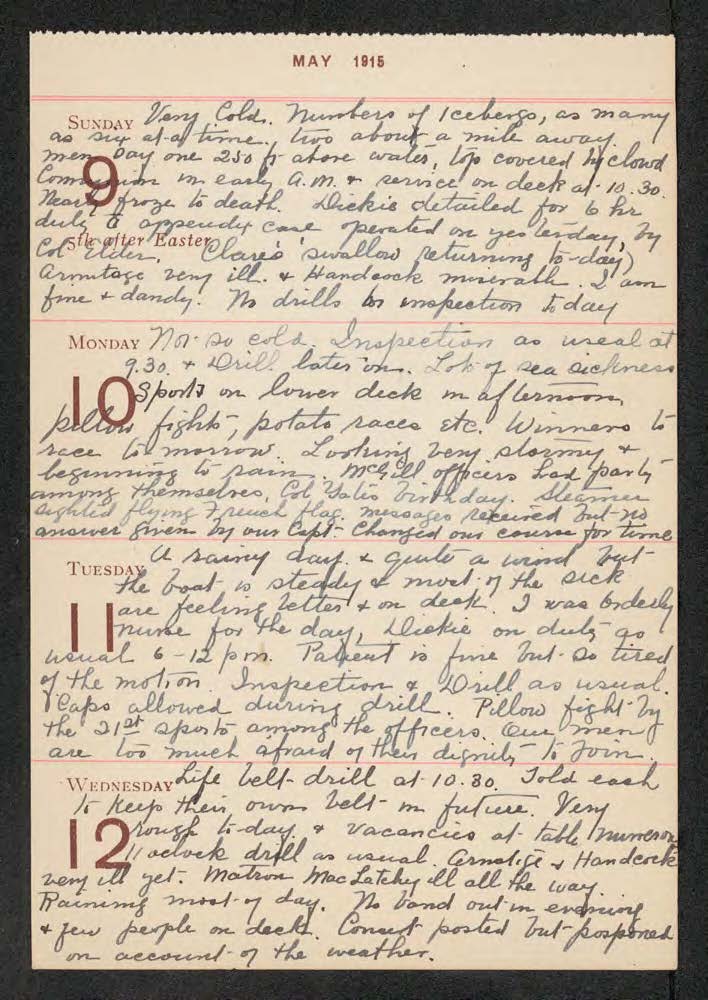 MAY 1915
SUNDAY Very Cold. Numbers of Icebergs, as many
as six at a time, two about a mile away
men say one 250 ft above water, top covered by cloud
9 Communion in early a.m. & service on deck at 10.30.
Nearly froze to death. Dickie detailed for 6 hr
duty to appendix case operated on yesterday, by
5th after Easter
Col Elder. Clare's swallow returning to-day)
Armitage very ill. & Handcock miserable. I am
fine & dandy. No drills or inspection today
MONDAY Not so cold. Inspection as usual at
9.30. & Drill later on. Lots of sea sickness
10 Sports on lower deck in afternoon,
pillow fights, potato races etc. Winners to
race to-morrow. Looking very stormy &
beginning to rain. McGill officers had party
among themselves, Col Yates birthday. Steamer
sighted flying French flag, messages received but no
answer given by our Capt. Changed our course for time
TUESDAY A rainy day. & quite a wind but
the boat is steady & most of the sick
11 are feeling better & on deck. I was orderly
nurse for the day, Dickie on duty as
usual 6-12 p.m. Patient is fine but so tired
of the motion. Inspection & Drill as usual.
Caps allowed during drill. Pillow fight by
the 21st sports among the officers. Our men
are too much afraid of their dignity to join.
WEDNESDAY Life belt drill at 10.30. Told each
to keep their own belt in future. Very
12 rough to-day & vacancies at table numerous
11 oclock drill as usual. Armatige & Handcock
very ill yet. Matron MacLatchy ill all the way.
Raining most of day. No band out in evening
& few people on deck. Concert posted but posponed
on account of the weather.